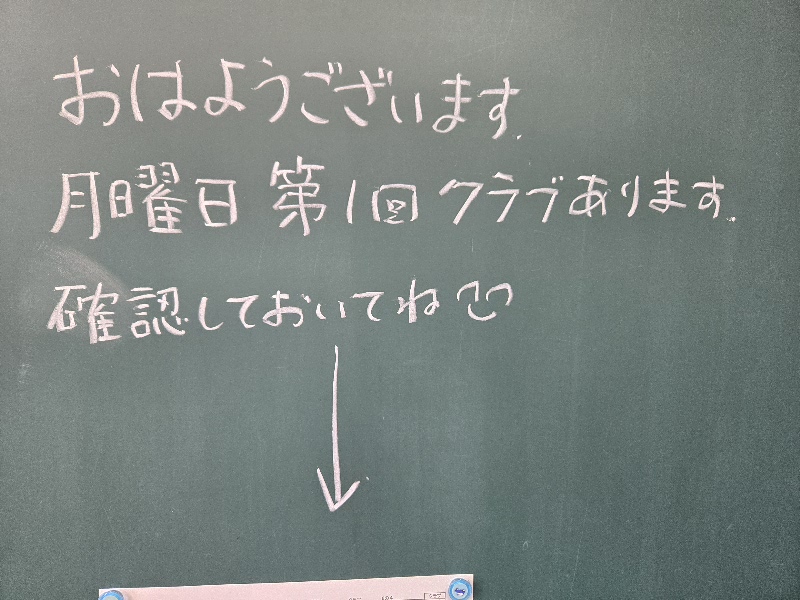 おはようございます.
月曜日 第1回 クラブあります.
確認しておいてね